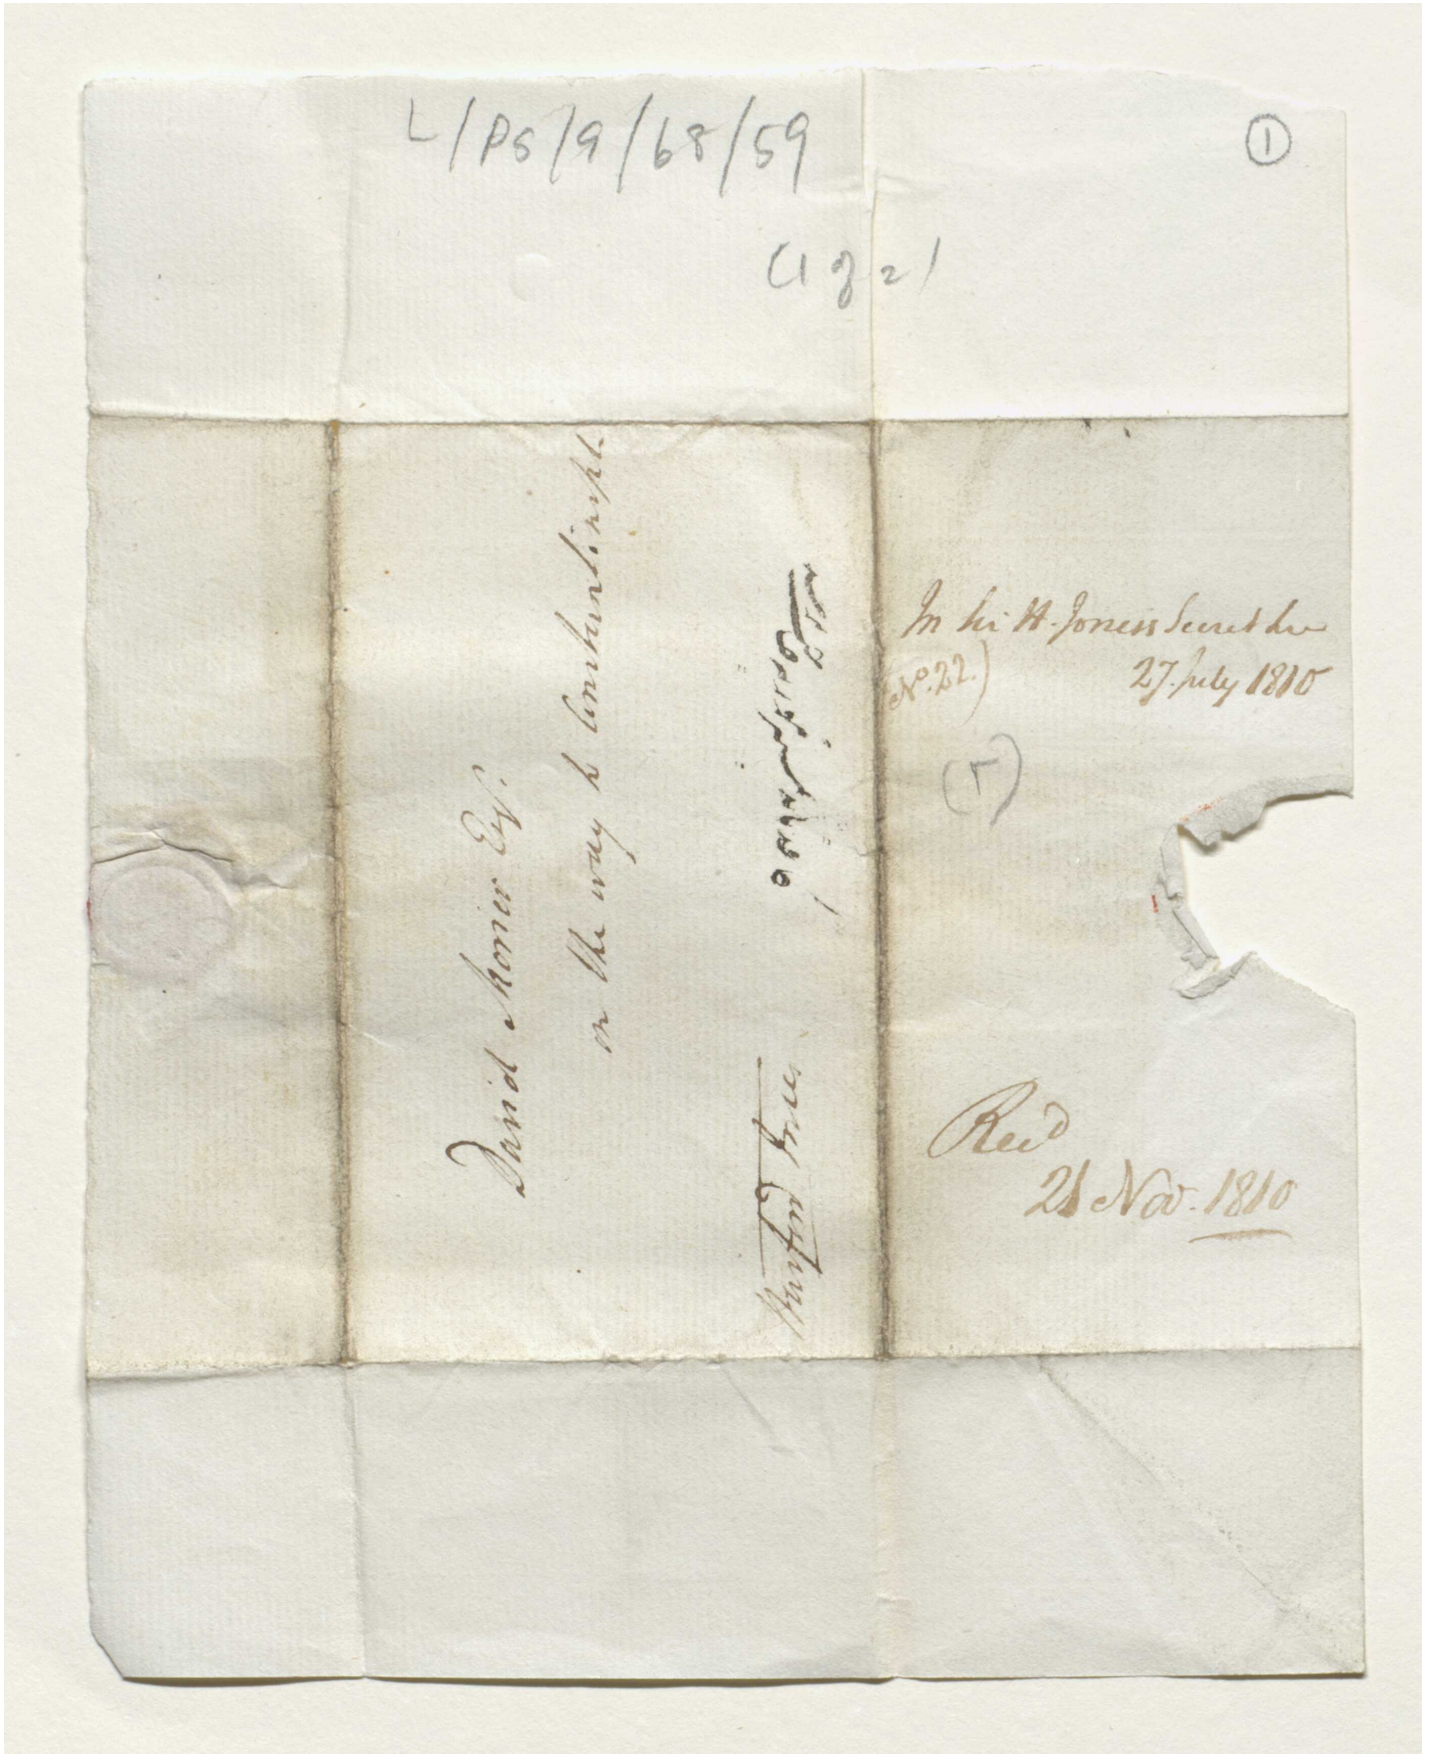 L/PS/9/68/59
1
(1 of 2)
David Morier Esqr.
on the way to Constantinople.
Harford Jones
In Sir H. Jones's Secret
(No. 22.)
27 July 1810
Rec'd
21 Nov. 1810